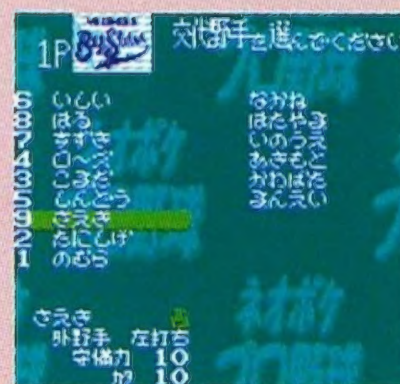 1P BAYSTARS 交代野手を選んでください
6 いしい
8 はる
7 すずき
4 ローズ
3 こまだ
5 しんどう
9 さえき
2 たにしげ
1 のむら
なかね
はたやま
いのうえ
あきもと
かわばた
まんえい
さえき
外野手 左打ち
守備力 10
肩 10
ネオポケ
プロ野球